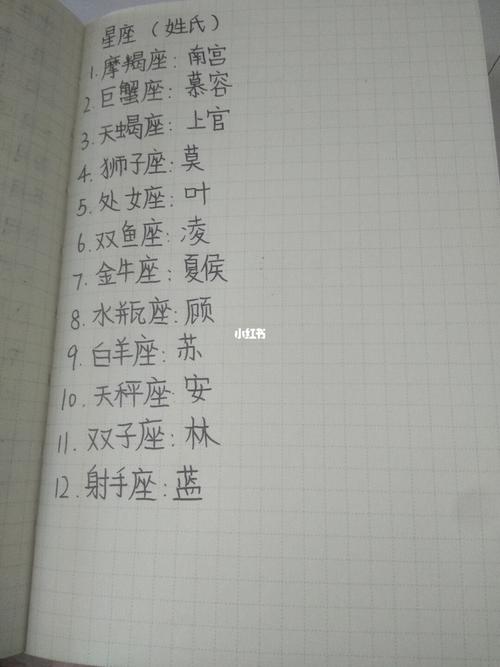 星座（姓氏）
1.摩羯座：南宫
2.巨蟹座：慕容
3.天蝎座：上官
4.狮子座：莫
5.处女座：叶
6.双鱼座：凌
7.金牛座：夏侯
8.水瓶座：顾
小红书
9.白羊座：苏
10.天秤座：安
11.双子座：林
12.射手座：蓝